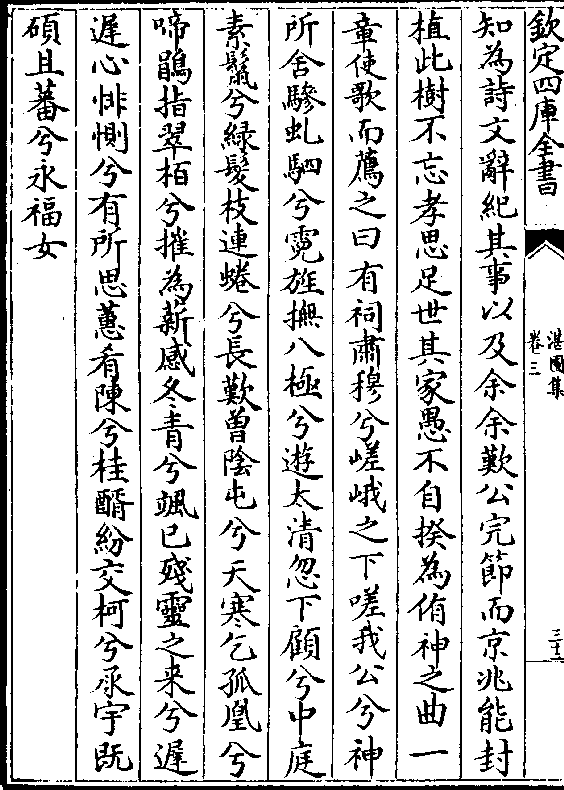 欽定四庫全書
湛園集
卷三
三十二
知為詩文辭紀其事以及余余歎公完節而京兆能封
植此樹不忘孝思足世其家愚不自揆為侑神之曲一
章使歌而薦之曰有祠肅穆兮嵯峨之下嗟我公兮神
所舍驂虬駟兮霓旌撫八極兮遊太清忽下顧兮中庭
素鬣兮緑髮枝連蜷兮長歎曾陰屯兮天寒乞孤凰兮
啼鵑指翠栢兮摧為新感冬青兮颯已殘靈之来兮遲
遲心悱惻兮有所思蕙肴陳兮桂醑紛交柯兮承宇既
碩且蕃兮永福女